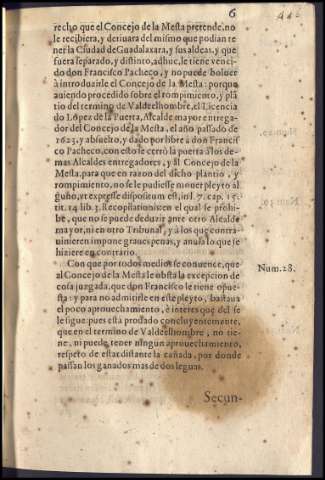 6
recho que el Concejo de la Mesta pretende, no
le recibiera, y deriuara del mismo que podian te
ner la Ciudad de Guadalaxara, y sus aldeas, y que
fuera separado, y distinto, adhuc, le tiene venci
do don Francisco Pacheco, y no puede boluer
à introduzirle el Concejo de la Mesta: porque
auiendo procedido sobre el rompimiento, y plã
tio del termino de Valdeelhombre, el Licencia
do Lopez de la Puerta, Alcalde mayor entrega-
dor del Concejo de la Mesta, el año passado de
1625, y absuelto, y dado por libre à don Francis
co Pacheco, con esto se cerrò la puerta a los de-
mas Alcaldes entregadores, y al Concejo de la
Mesta, para que en razon del dicho plantio, y
rompimiento, no se le pudiesse mouer pleyto al
guno, vt expresse dispositum est, in l. 7. cap. 15.
tit. 14. lib. 3. Recopilationis en el qual se prohi-
be, que no se puede deduzir ante otro Alcalde
mayor, ni en otro Tribunal, y à los que contra-
uinieren impone graues penas, y anula lo que se
hiziere en contrario.
Con que por todos medios se conuence, que
al Concejo de la Mesta le obsta la excepcion de
cosa juzgada, que don Francisco le tiene opue-
sta: y para no admitirle en este pleyto, bastaua
el poco aprouechamiento, è interes que del se
le sigue pues està prouado concluyentemente,
que en el termino de Valdeelhombre, no tie-
ne, ni puede tener ningun aprouechamiento,
respeto de estar distante la cañada, por donde
passan los ganados mas de dos leguas.
Num. 28.
Secun-